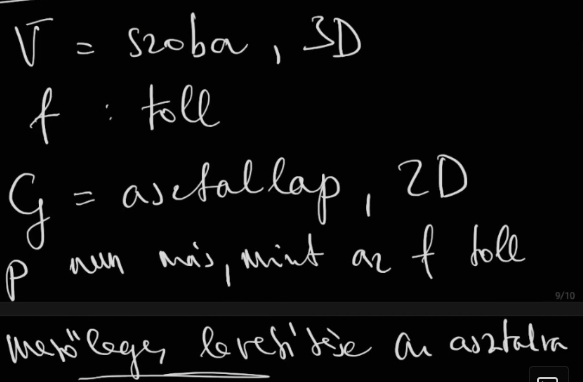 V = szoba, 3D
f : toll
G = asztallap, 2D
p nem más, mint az f toll
9/10
merőleges levetítése az asztalra